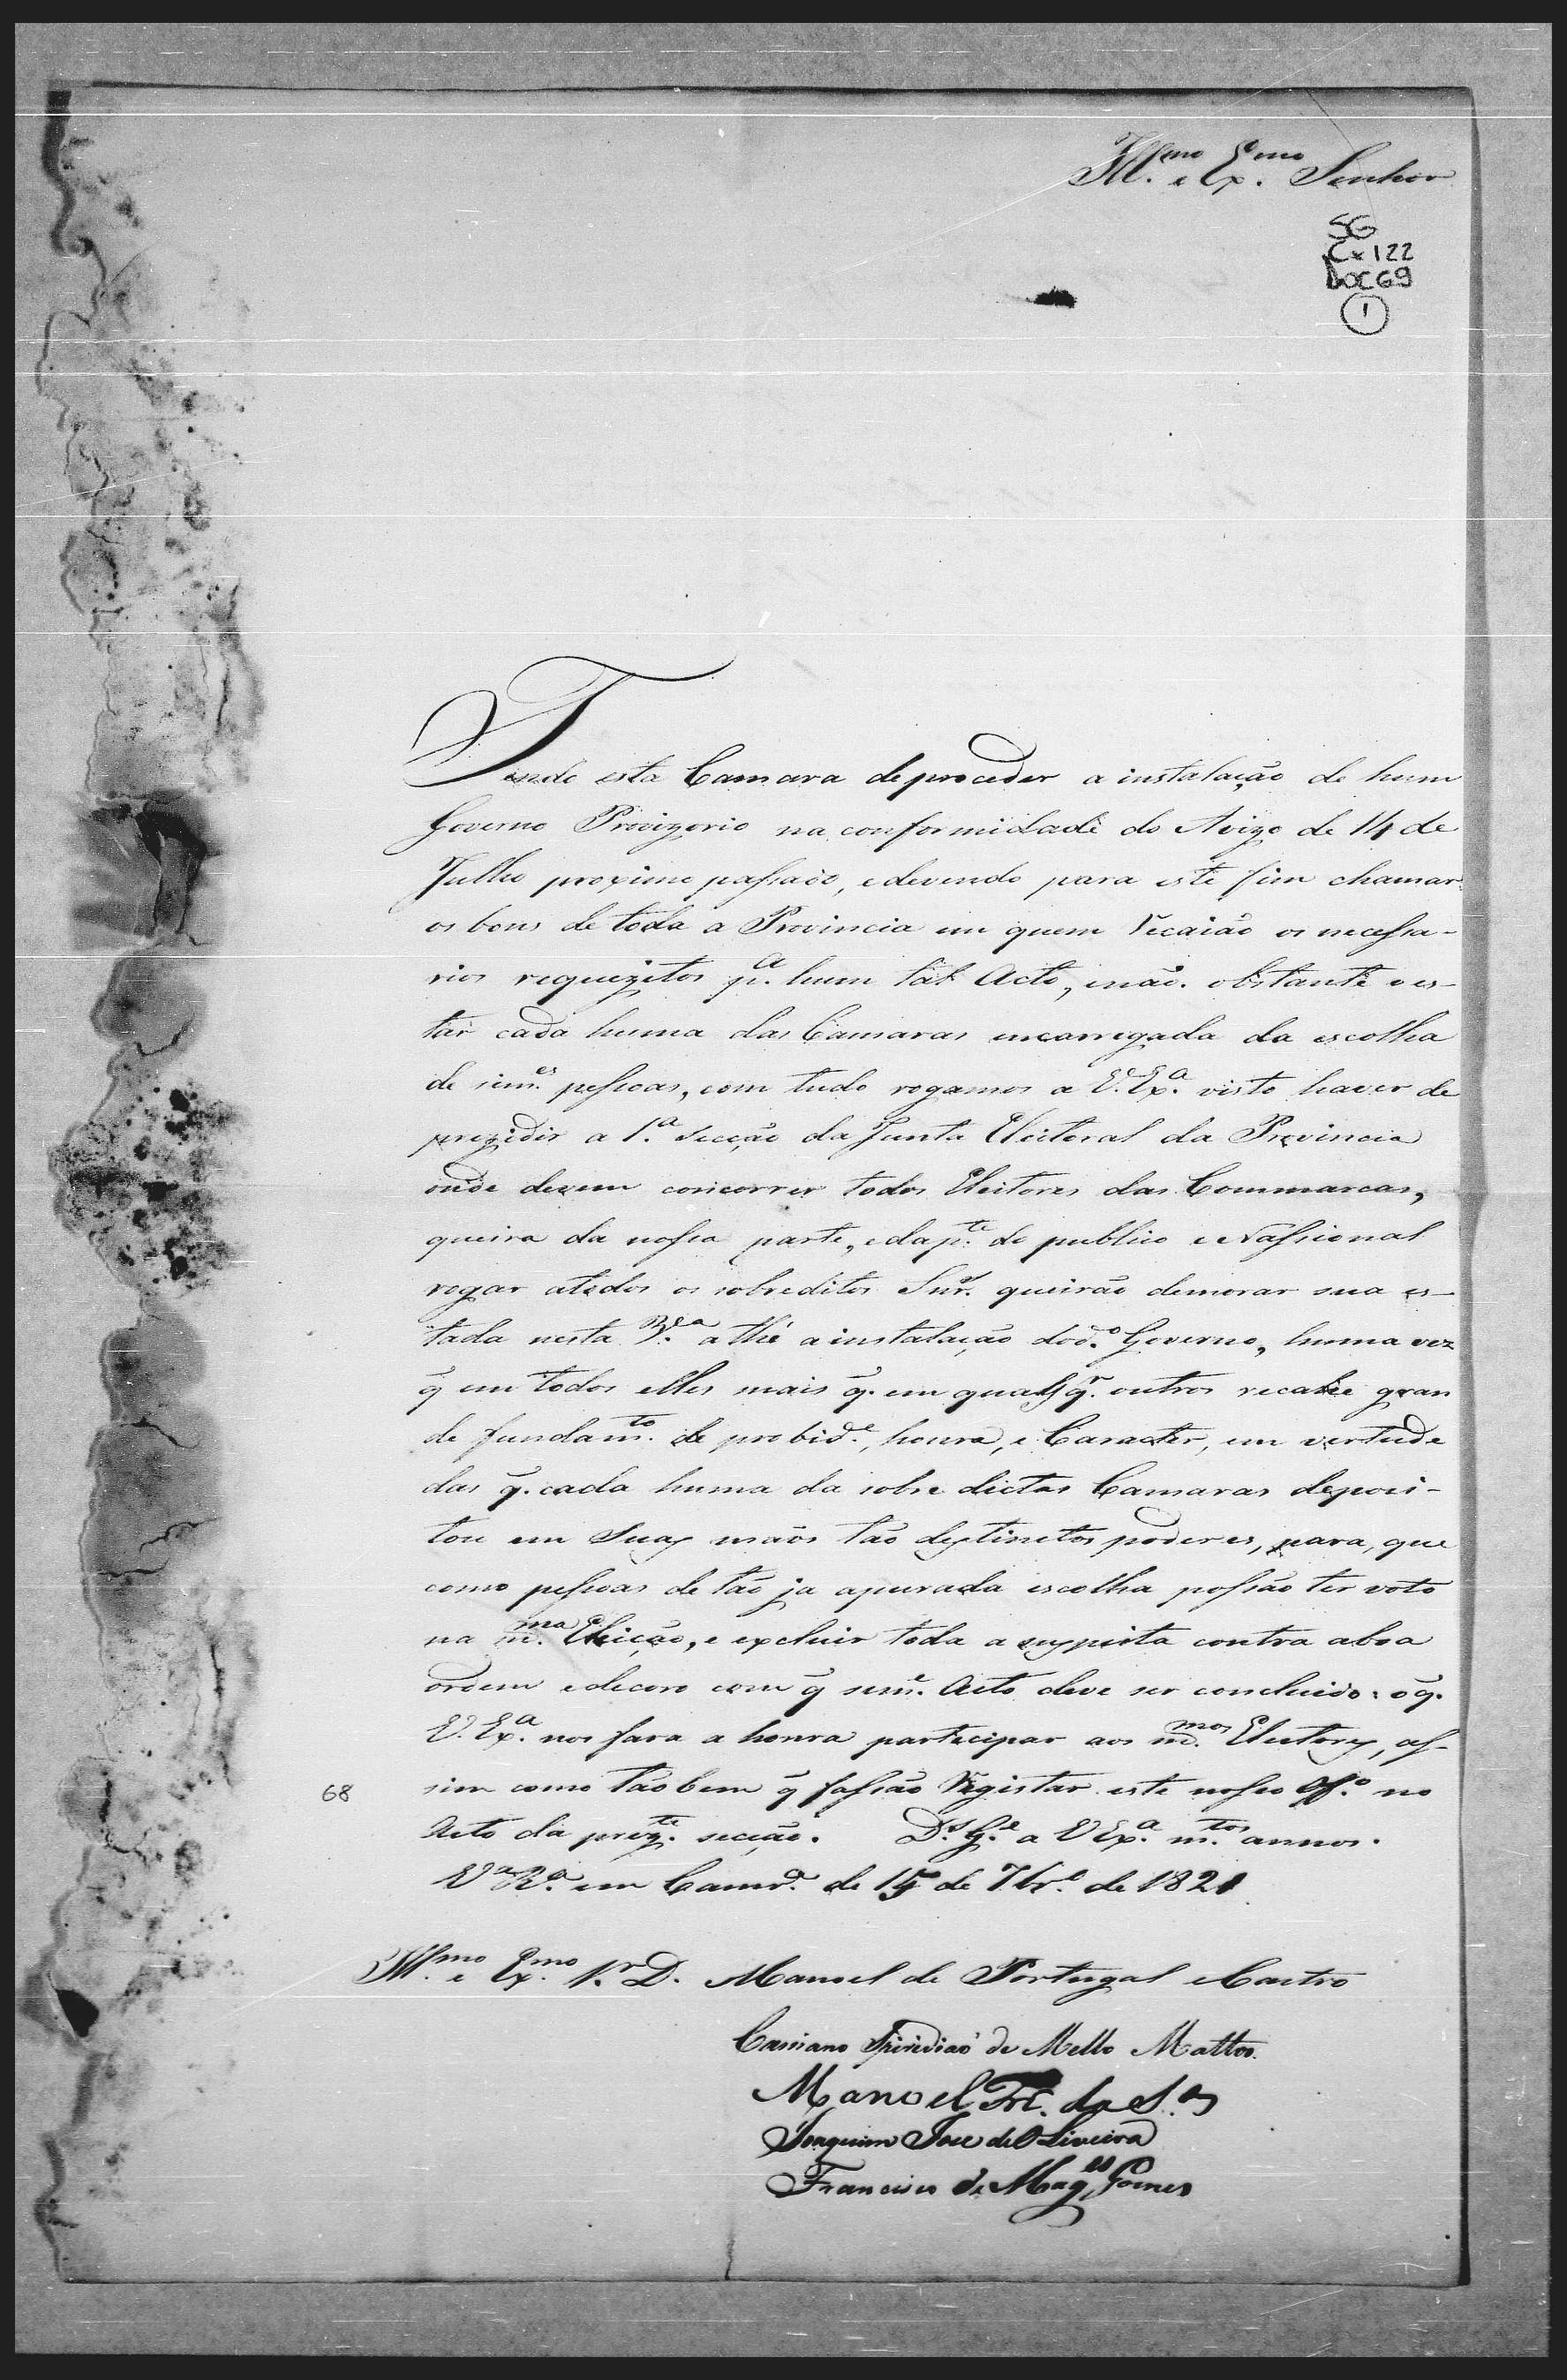 Ill.mo e Ex.mo Senhor
SG
Cx 122
Doc 69
1
Tendo esta Camara de proceder a instalação de hum
Governo Provizorio na conformidade do Avizo de 14 de
Julho proximo passado, e devendo para este fim chamar
os bons de toda a Provincia em quem recaião os necessa-
rios requezitos p.a hum tal Acto, e não obstante o es-
tar cada huma das Camaras encarregada da escolha
de sim.es pessoas, com tudo rogamos a V. Ex.a visto haver de
prezidir a 1.a secção da Junta Eleitoral da Provincia
onde devem concorrer todos Eleitores das Commarcas,
queira da nossa parte, e da p.te do publico e Nassional
rogar a todos os sobreditos Snr.s queirão demorar sua es-
tada nesta V.a athé a instalação do d.o Governo, huma vez
q̃ em todos elles mais q̃. em quaesq.r outros recahe gran
de fundam.to de probid.e, honra, e Caracter, em vertude
das q̃. cada huma da sobre dictas Camaras deposi-
tou em Suas mãos tão destinctos poderes, para, que
como pessoas de tão ja apurada escolha possão ter voto
na m.ma Eleição, e excluir toda a suspeita contra a boa
ordem e decoro com q̃ sem.e Acto deve ser concluido: o q̃.
V. Ex.a nos fara a honra participar aos m.mos Electores, as-
sim como tão bem q̃ fassão Registar este nosso Off.o no
Acto da prez.te secção. D.s G.e a V Ex.a m.tos annos.
V.a R.a em Camr.a de 15 de 7br.o de 1821
Ill.mo e Ex.mo Sr. D. Manoel de Portugal e Castro
Cassiano Spiridião de Mello Mattos.
Manoel Frc. da S.a
Joaquim Jose de Oliveira
Francisco de Mag.es Gomes
68